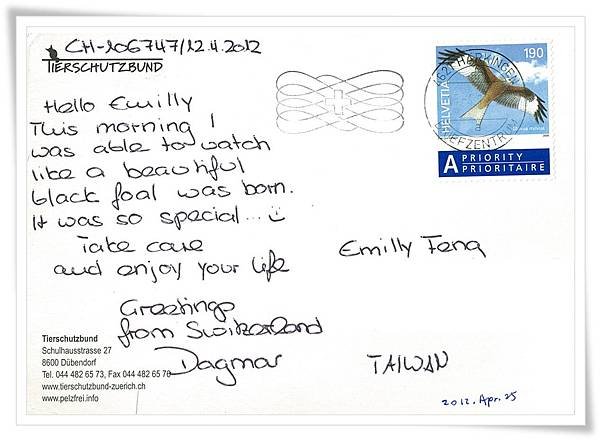 CH-106747/12.4.2012
TIERSCHUTZBUND
Hello Emilly
This morning I
was able to watch
like a beautiful
black foal was born.
It was so special... ☺
Take care
and enjoy your life
Greetings
from Switzerland
Dagmar
Tierschutzbund
Schulhausstrasse 27
8600 Dübendorf
Tel. 044 482 65 73, Fax 044 482 65 76
www.tierschutzbund-zuerich.ch
www.pelzfrei.info
190
HELVETIA
HÄRKINGEN
BRIEFZENTRUM
A PRIORITY
PRIORITAIRE
Emilly Feng
TAIWAN
2012. Apr. 25